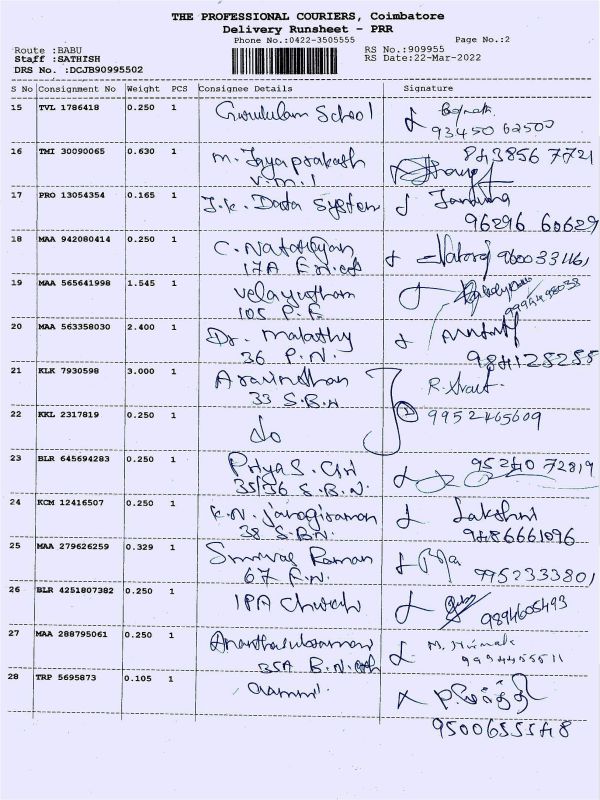 THE PROFESSIONAL COURIERS, Coimbatore
Delivery Runsheet - PRR
Phone No.:0422-3505555 Page No.:2
Route :BABU RS No.:909955
Staff :SATHISH RS Date:22-Mar-2022
DRS No. :DCJB90995502
S No Consignment No Weight PCS Consignee Details Signature
15 TVL 1786418 0.250 1 Gurukulam School
93450 62500
16 TMI 30090065 0.630 1 M. Jayaprakash 843856 7721
V.M.I
17 PRO 13054354 0.165 1 J.K. Data System
96296 60629
18 MAA 942080414 0.250 1 C. Natarajan Nataraj 9600331161
17A
19 MAA 565641998 1.545 1 Velayutham
105 P.F. 9995498038
20 MAA 563358030 2.400 1 Dr. Malathy
36 P.N. 984128255
21 KLK 7930598 3.000 1 Aravindhan R.
33 S.B.N
22 KKL 2317819 0.250 1 do 2 9952465609
23 BLR 645694283 0.250 1 Priya S. Giri 95240 72819
35/36 S.B.N.
24 KCM 12416507 0.250 1 K.N. Janagiraman Lakshmi
38 S.B.N 9486661096
25 MAA 279626259 0.329 1 Srinivas Raman
67 F.N. 9952333801
26 BLR 4251807382 0.250 1 IPA Church 9894605493
27 MAA 288795061 0.250 1 Ananthasubramani M. Nirmala
35A B.N. 9994455511
28 TRP 5695873 0.105 1
9500655548